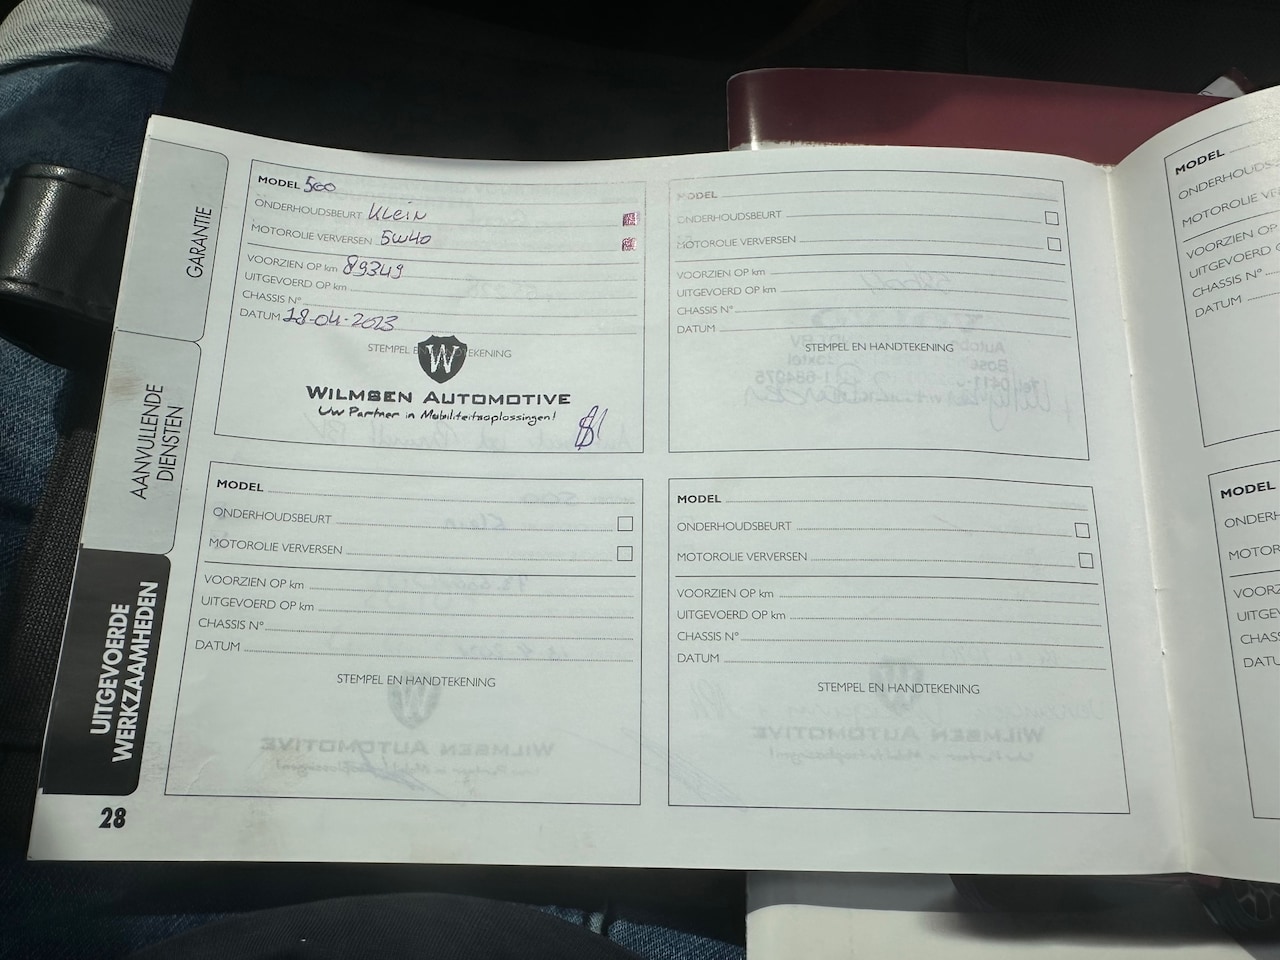 GARANTIE
AANVULLENDE
DIENSTEN
UITGEVOERDE
WERKZAAMHEDEN
28
MODEL 500
ONDERHOUDSBEURT Klein
MOTOROLIE VERVERSEN 5W40
VOORZIEN OP km 89349
UITGEVOERD OP km
CHASSIS N°
DATUM 28-04-2023
STEMPEL EN HANDTEKENING
W
WILMSEN AUTOMOTIVE
Uw Partner in Mobiliteitsoplossingen!
MODEL
ONDERHOUDSBEURT
MOTOROLIE VERVERSEN
VOORZIEN OP km
UITGEVOERD OP km
CHASSIS N°
DATUM
STEMPEL EN HANDTEKENING
MODEL
ONDERHOUDSBEURT
MOTOROLIE VERVERSEN
VOORZIEN OP km
UITGEVOERD OP km
CHASSIS N°
DATUM
STEMPEL EN HANDTEKENING
MODEL
ONDERHOUDSBEURT
MOTOROLIE VERVERSEN
VOORZIEN OP km
UITGEVOERD OP km
CHASSIS N°
DATUM
STEMPEL EN HANDTEKENING
MODEL
ONDERHOUDS
MOTOROLIE VE
VOORZIEN OP
UITGEVOERD
CHASSIS N°
DATUM
MODEL
ONDERH
MOTOR
VOORZ
UITGE
CHASS
DATU